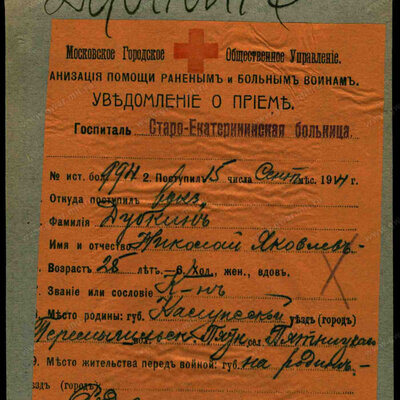 Московское Городское Общественное Управленіе.
АНИЗАЦІЯ ПОМОЩИ РАНЕНЫМЪ и БОЛЬНЫМЪ ВОИНАМЪ.
УВѢДОМЛЕНІЕ О ПРІЕМѢ.
Госпиталь Старо-Екатерининская больница
№ ист. бол. 2. Поступилъ 15 числа Сент. мѣс. 1914 г.
Откуда поступилъ
Фамилія Дубкинъ
Имя и отчество Николай Яковлев-
Возрастъ 28 лѣтъ.—8. Хол., жен., вдов.
Званіе или сословіе К-нъ
Мѣсто родины: губ. Калужской уѣздъ (город)
Перемышльск. сел.
9. Мѣсто жительства передъ войной: губ. на родин-
ѣздъ (городъ)